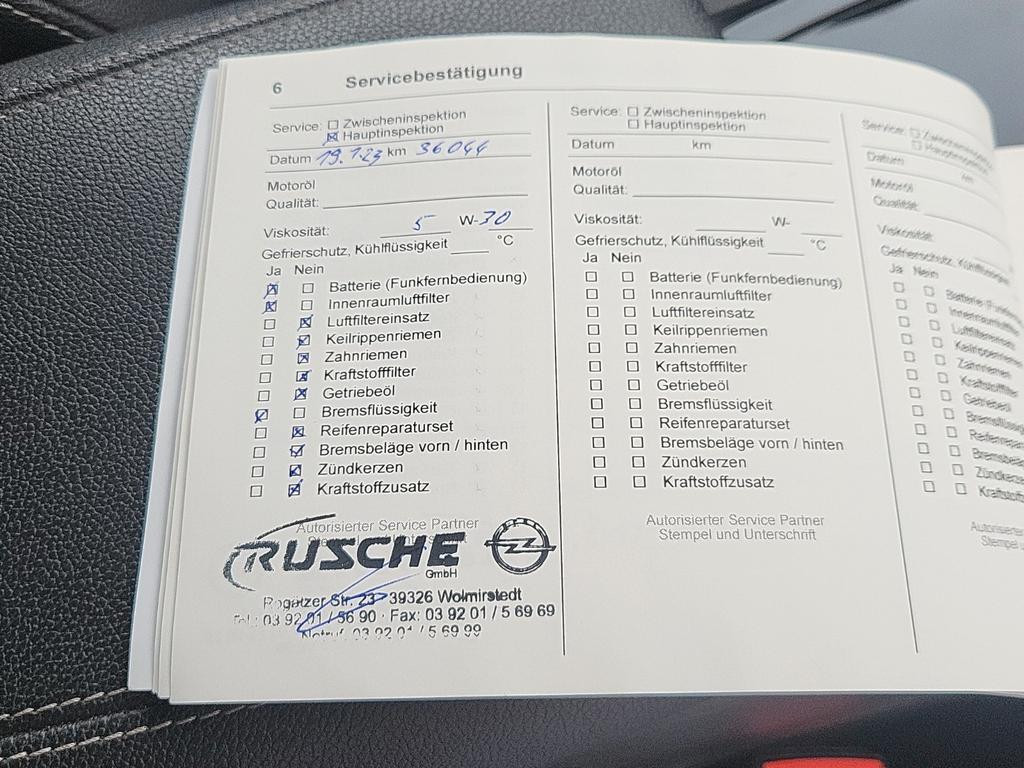 6 Servicebestätigung
Service: ☐ Zwischeninspektion
☒ Hauptinspektion
Datum 19.1.23 km 36044
Motoröl
Qualität:
Viskosität: 5 W-30
Gefrierschutz, Kühlflüssigkeit °C
Ja Nein
☒ ☐ Batterie (Funkfernbedienung)
☒ ☐ Innenraumluftfilter
☐ ☒ Luftfiltereinsatz
☐ ☒ Keilrippenriemen
☐ ☒ Zahnriemen
☐ ☒ Kraftstofffilter
☐ ☒ Getriebeöl
☒ ☐ Bremsflüssigkeit
☐ ☒ Reifenreparaturset
☐ ☒ Bremsbeläge vorn / hinten
☐ ☒ Zündkerzen
☐ ☒ Kraftstoffzusatz
Autorisierter Service Partner
Stempel und Unterschrift
RUSCHE
GmbH
Rogätzer Str. 23 · 39326 Wolmirstedt
Tel.: 03 92 01 / 56 90 · Fax: 03 92 01 / 5 69 69
Notruf 03 92 01 / 5 69 99
Service: ☐ Zwischeninspektion
☐ Hauptinspektion
Datum km
Motoröl
Qualität:
Viskosität: W-
Gefrierschutz, Kühlflüssigkeit °C
Ja Nein
☐ ☐ Batterie (Funkfernbedienung)
☐ ☐ Innenraumluftfilter
☐ ☐ Luftfiltereinsatz
☐ ☐ Keilrippenriemen
☐ ☐ Zahnriemen
☐ ☐ Kraftstofffilter
☐ ☐ Getriebeöl
☐ ☐ Bremsflüssigkeit
☐ ☐ Reifenreparaturset
☐ ☐ Bremsbeläge vorn / hinten
☐ ☐ Zündkerzen
☐ ☐ Kraftstoffzusatz
Autorisierter Service Partner
Stempel und Unterschrift
Service: ☐ Zwischeninspektion
☐ Hauptinspektion
Datum km
Motoröl
Qualität:
Viskosität:
Gefrierschutz, Kühlflüssigkeit
Ja Nein
☐ ☐ Batterie (Funkf
☐ ☐ Innenraumluftfilter
☐ ☐ Luftfilterein
☐ ☐ Keilrippenriem
☐ ☐ Zahnriemen
☐ ☐ Kraftstofffilter
☐ ☐ Getriebeöl
☐ ☐ Bremsflüssig
☐ ☐ Reifenrepar
☐ ☐ Bremsbeläg
☐ ☐ Zündkerze
☐ ☐ Kraftstoff
Autorisierter
Stempel